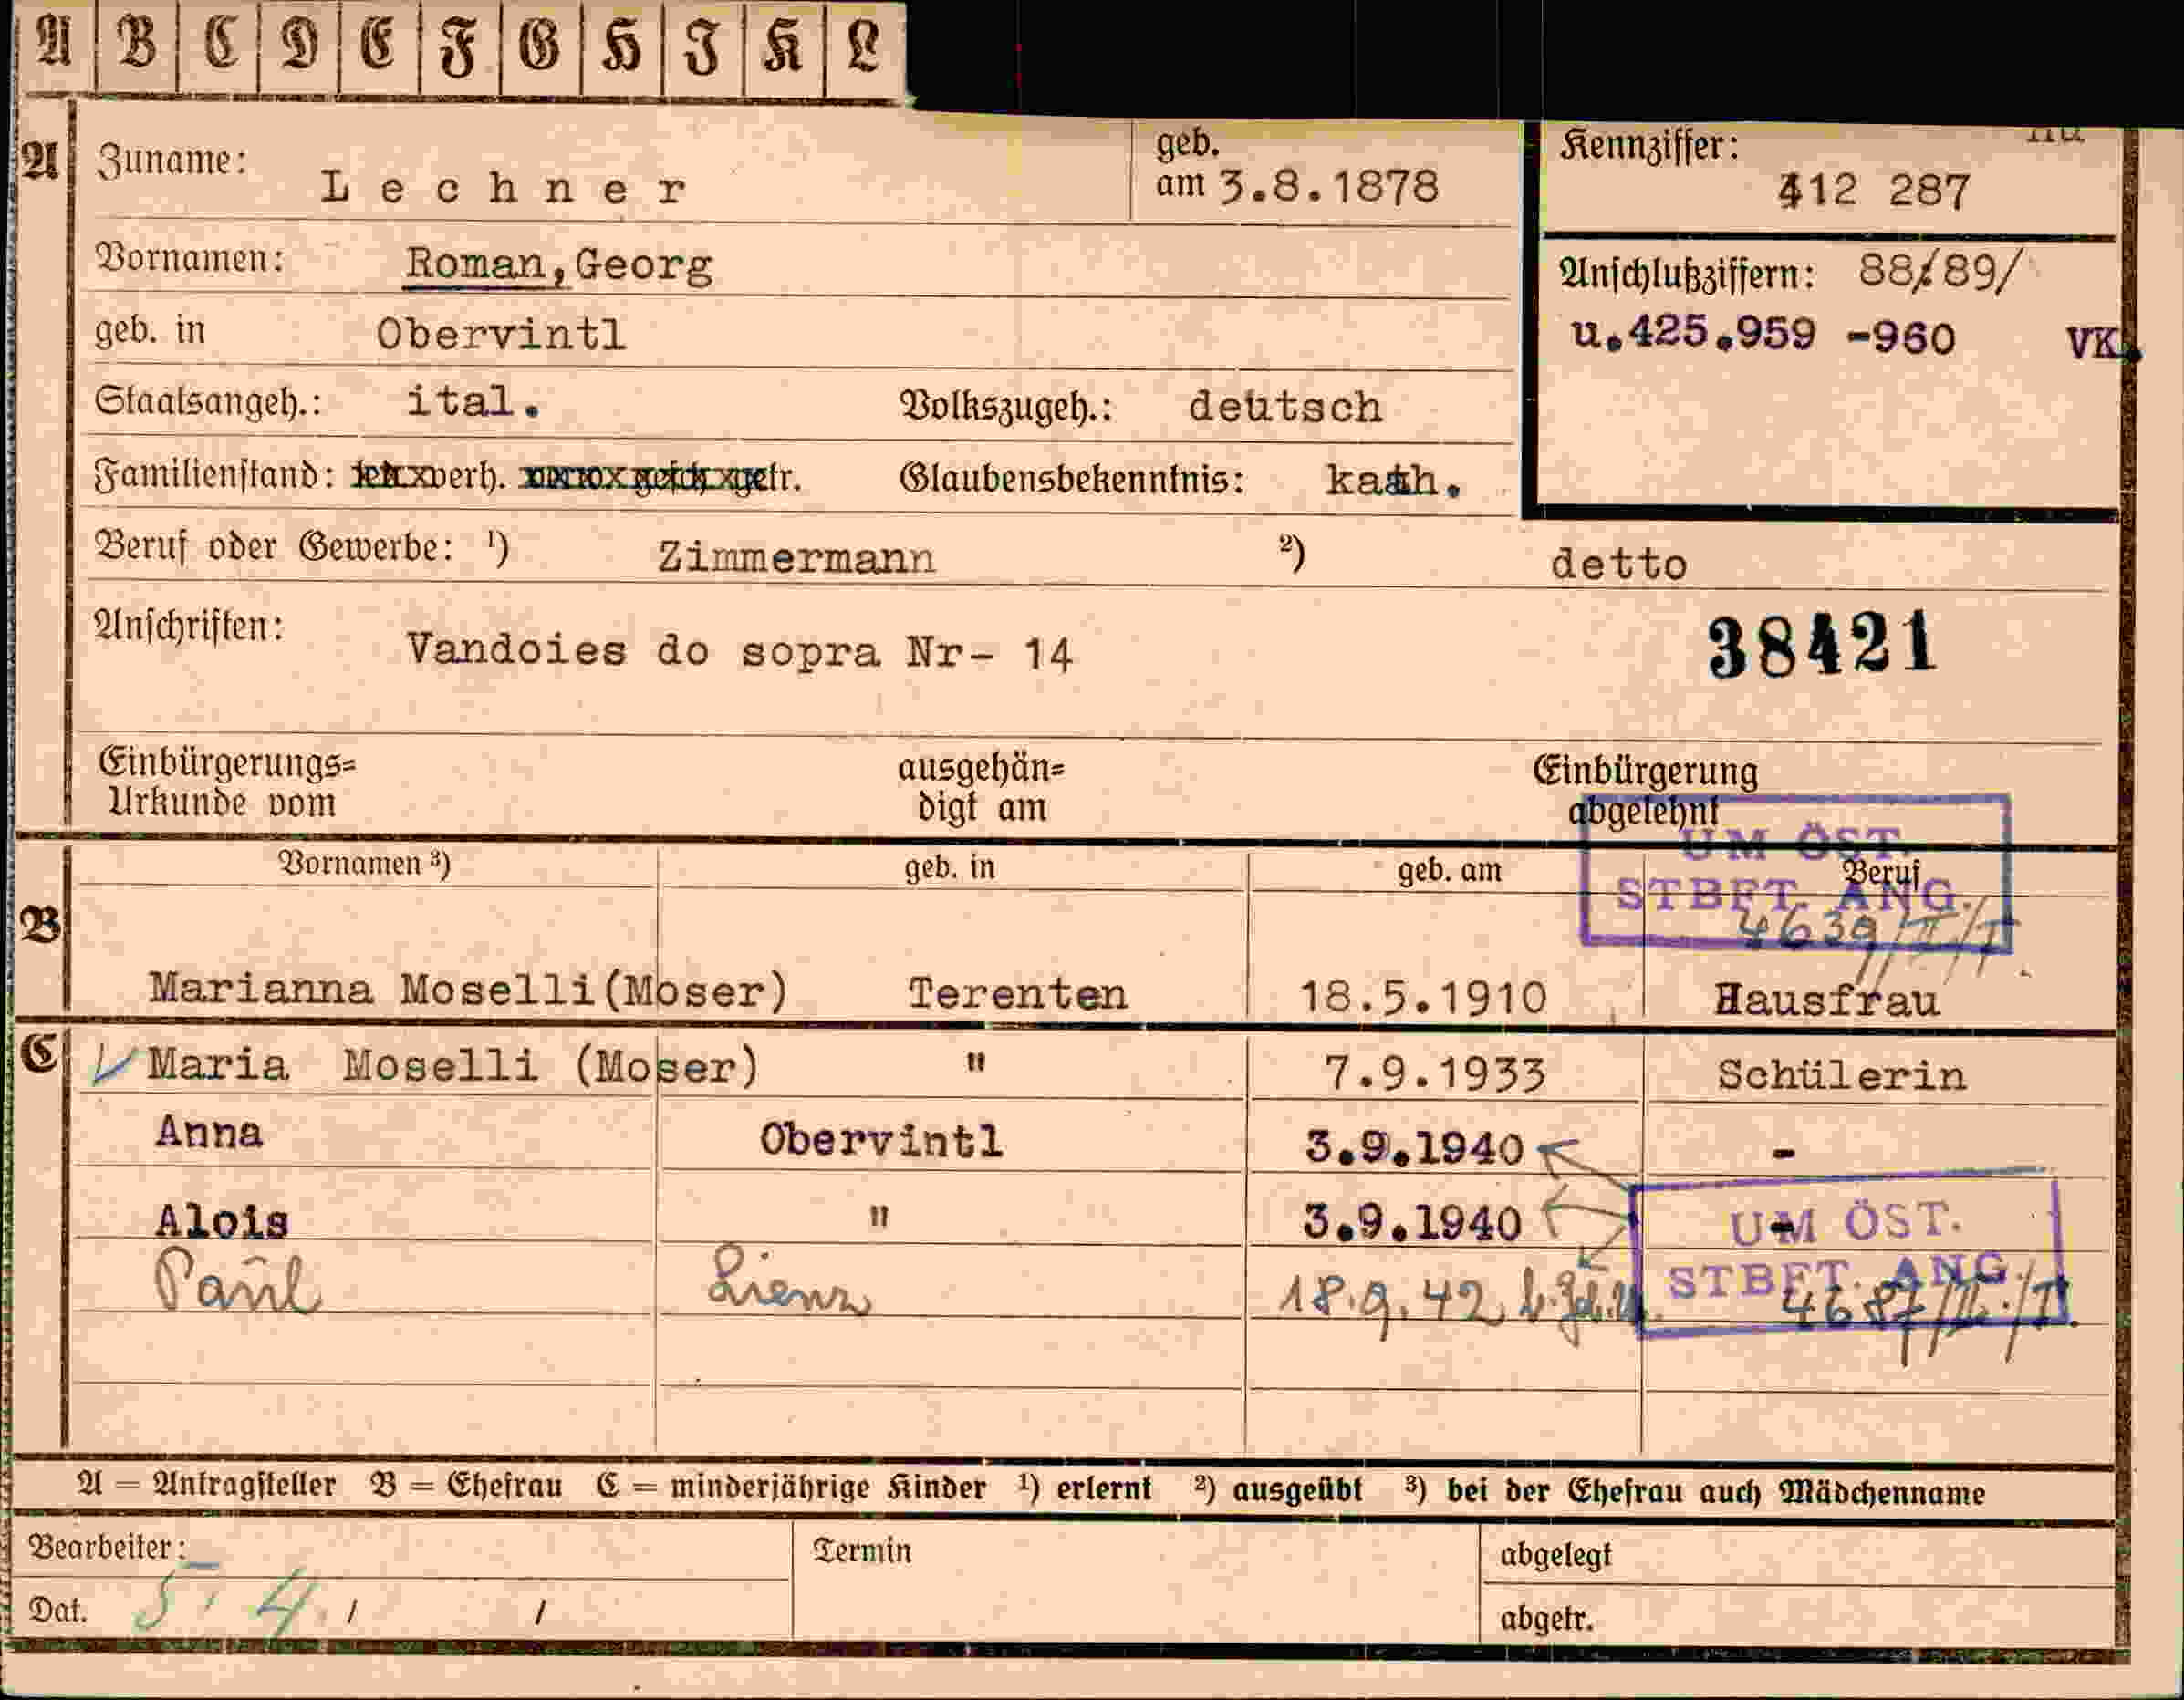 A B C D E F G H I K L
A Zuname: Lechner geb. am 3.8.1878
Kennziffer: 412 287
Vornamen: Roman, Georg
Anschlußziffern: 88/89/
u.425.959 -960 VK.
geb. in Obervintl
Staatsangeh.: ital. Volkszugeh.: deutsch
Familienstand: verh. getr. Glaubensbekenntnis: kath.
Beruf oder Gewerbe: ¹) Zimmermann ²) detto
Anschriften: Vandoies do sopra Nr- 14
38421
Einbürgerungs=
Urkunde vom
ausgehän=
digt am
Einbürgerung
abgelehnt
UM ÖST.
STBFT. ANG.
4639/II/I
Vornamen ³) geb. in geb. am Beruf
B Marianna Moselli(Moser) Terenten 18.5.1910 Hausfrau
C Maria Moselli (Moser) " 7.9.1933 Schülerin
Anna Obervintl 3.9.1940 -
Alois " 3.9.1940 -
UM ÖST.
STBFT. ANG.
Paul Lienz 18.9.42
A = Antragsteller B = Ehefrau C = minderjährige Kinder ¹) erlernt ²) ausgeübt ³) bei der Ehefrau auch Mädchenname
Bearbeiter: Termin abgelegt
Dat. 5. 4. / / abgetr.